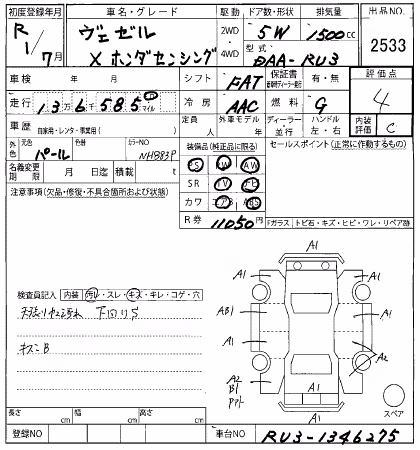 初度登録年月 車名・グレード 駆動 ドア数・形状 排気量 出品NO.
R1/7月 ヴェゼル X ホンダセンシング 2WD・4WD 5W 1500cc 2533
型式 DAA-RU3
車検 年 月 シフト FAT 保証書 有・無 評価点 4
走行 13万6千585 km マイル 冷房 AAC 燃料 G
車歴 自家用・レンタ・事業用( ) 外車モデル 年 ディーラー・並行 ハンドル 左・右 内装評価 C
外色 元色 パール 色替 カラーNO NH883P 装備品(純正品に限る) セールスポイント(正常に動作するもの)
PS PW AW
名義変更 月 日迄 積載 t SR TV
注意事項(欠品・修復・不具合箇所および状態) カワ エアB ABS
R券 11050円
Fガラス トビ石・キズ・ヒビ・ワレ・リペア跡
A1
A1
A1 A1
検査員記入 内装 汚れ・スレ・キズ・キレ・コゲ・穴
AB1 A1
下回りS
A1
キズB
A2 A2
B1
A1
スペア
A1
長さ cm 幅 cm 高さ cm
登録NO 車台NO RU3-1346275